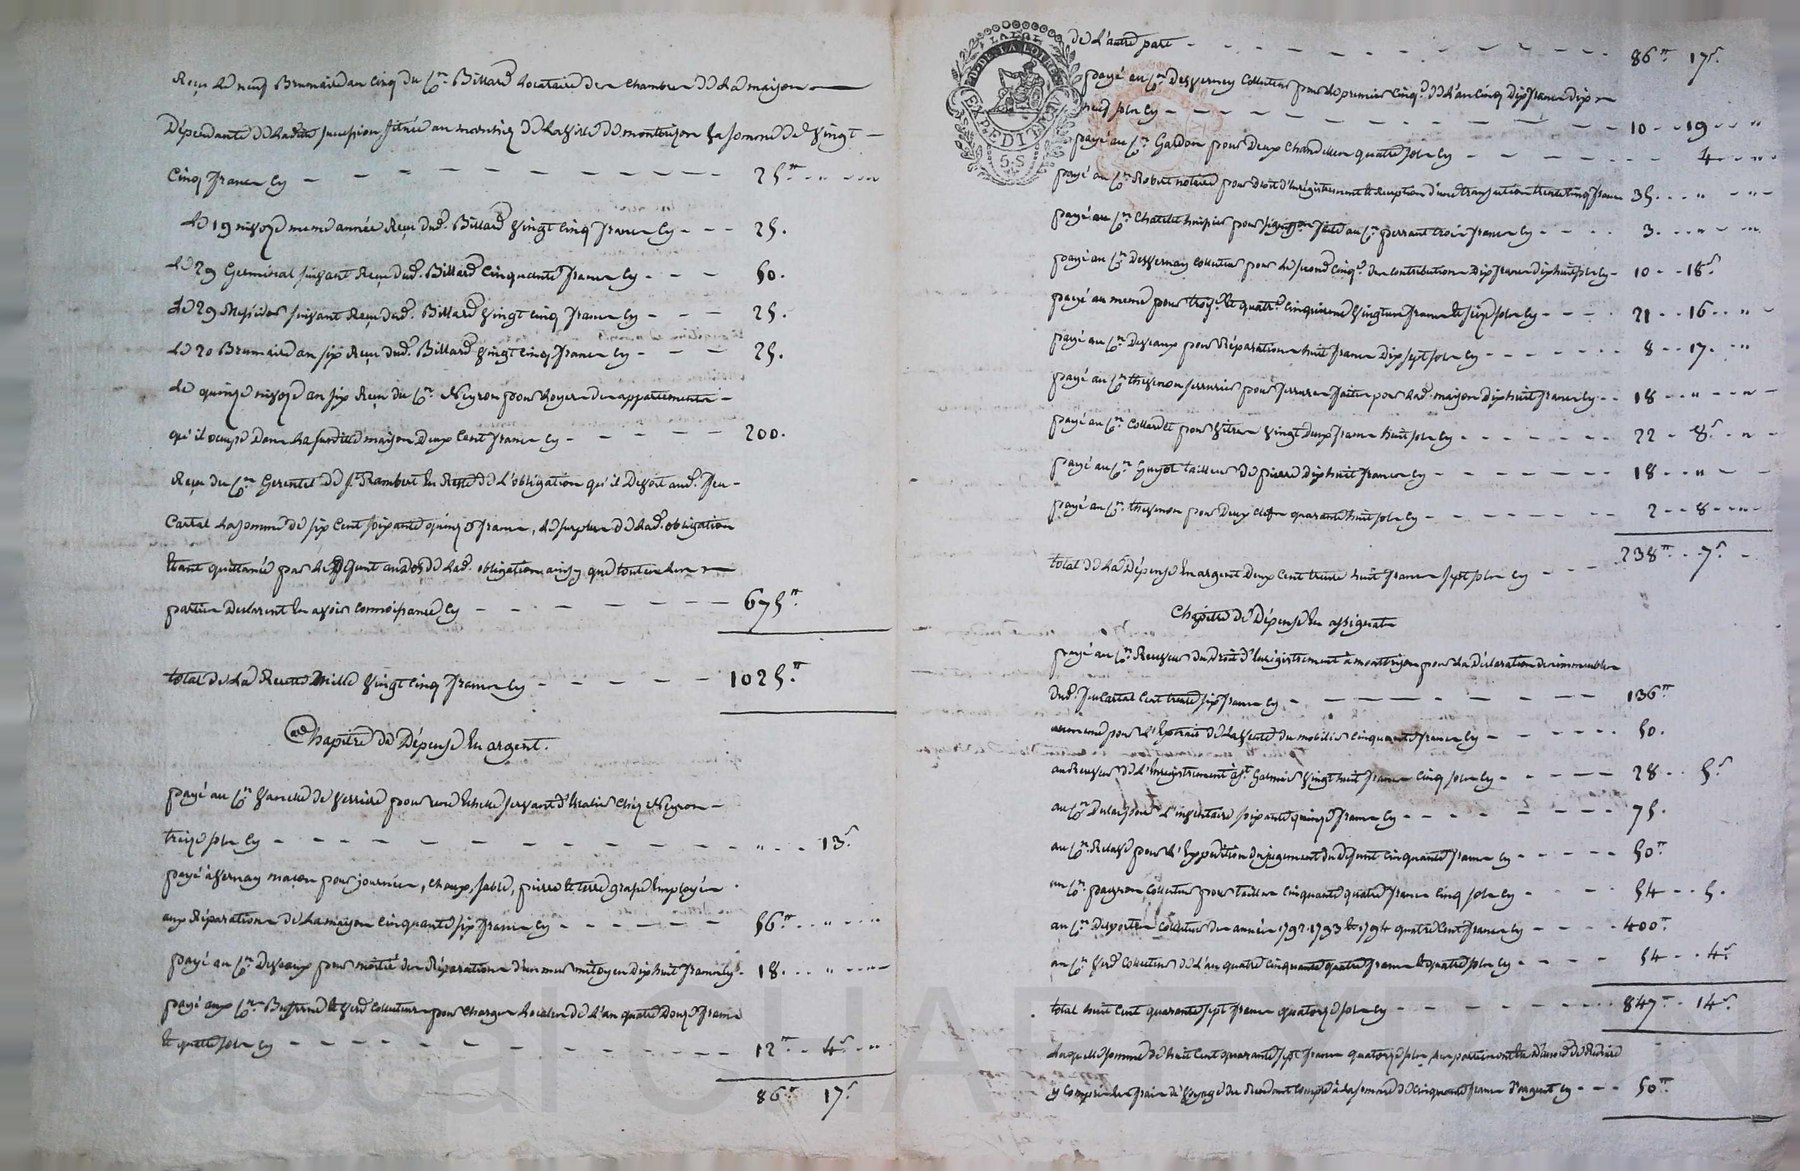 Reçu le neuf Brumaire an cinq du C.en Billard locataire des chambres de la maison
Dépendante de ladite succession, située au de la ville de montbrison la somme de vingt
cinq francs cy 25.tt
Le 19 nivose meme année Reçu dud. Billard vingt cinq francs cy 25.
Le 29 Germinal suivant Reçu dud. Billard Cinquante francs cy 50.
Le 29 Messidor suivant Reçu dud. Billard vingt cinq francs cy 25.
Le 20 Brumaire an six Reçu dud. Billard vingt cinq francs cy 25.
Le quinze nivose an six Reçu du C.en Neyron pour loyers des appartements
qu'il occupe dans la susditte maison Deux Cent francs cy 200.
Reçu du C.en Gerentet de S.t Rambert En Reste de l'obligation qu'il Devoit aud. feu
Cartal la somme de six Cent soixante quinze francs, le surplus de lad. obligation
étant quittancée par le Défunt au dos de lad. obligation ainsy que toutes les
parties declarent En avoir connoissance cy 675.tt
total de la Recette Mille vingt cinq francs cy 1025.tt
Chapitre de Dépense En argent.
payé au C.en de verrière pour une Echelle servant d'Escalier chez Neyron
treize sols cy " 13.s
payé à Vernay maçon pour journées, chaux, sable, pierre et terre grasse Employés
aux Réparations de la maison Cinquante six francs cy 56.tt "
payé au C.en Deveaux pour moitié des Réparations d'un mur mitoyen Dix huit francs cy 18. "
payé aux C.ens et verd Collecteurs pour charges locales de l'an quatre Douze francs
et quatre sols cy 12.tt 4.s
86.tt 17.s
de l'autre part 86.tt 17.s
payé au C.en Desvernay Collecteur pour le premier Cinq.e de l'an Cinq Dix francs Dix
neuf sols cy 10 19 "
payé au C.en Gardon pour Deux Chandelles quatre sols cy 4 "
payé au C.en Robert notaire pour Droit d'Enregistrement et Exception d'une transaction trente cinq francs 35 "
payé au C.en Chatelet huissier pour signiffon faite au C.en perrant trois francs cy 3. "
payé au C.en Desvernay Collecteur pour le second Cinq.e des Contributions Dix francs dix huit sols cy 10 18.s
payé au meme pour trois.e et quatr.e Cinquieme vingt un francs et seize sols cy 21 16 "
payé au C.en Deveaux pour Réparations huit francs Dix sept sols cy 8 17. "
payé au C.en thevenon serrurier pour serrures faites pour lad. maison dix huit francs cy 18 "
payé au C.en Collardet pour vitres vingt deux francs huit sols cy 22 8.s
payé au C.en Guyot tailleur de pierre Dix huit francs cy 18 "
payé au C.en thevenon pour Deux clefs quarante huit sols cy 2 8
238.tt 7.s
total de la Dépense En argent Deux Cent trente huit francs sept sols cy
Chapitre de Dépense En assignats
payé au C.en Receveur du Droit d'Enregistrement à montbrison pour la Déclaration des immeubles
dud. feu Cartal Cent trente six francs cy 136.tt
au meme pour l'Extrait de la vente du mobilier Cinquante francs cy 50.
au Receveur de l'Enregistrement à S.t Galmier vingt huit francs Cinq sols cy 28 5.s
au C.en l'inventaire soixante quinze francs cy 75.
au C.en Relave pour l'Expedition du jugement du Defunt Cinquante francs cy 50.tt
au C.en Collecteur pour tailles Cinquante quatre francs Cinq sols cy 54 5.
au C.en Desportes Collecteur des années 1792. 1793 et 1794 quatre Cent francs cy 400.tt
au C.en verd Collecteur de l'an quatre Cinquante quatre francs et quatre sols cy 54 4.s
total huit Cent quarante sept francs quatorze sols cy 847.tt 14.s
Laquelle somme de huit Cent quarante sept francs quatorze sols, Les parties ont de Réduire
y compris les frais de voyage du Rendant Compte à la somme de Cinquante francs d'argent cy 50.tt
LA LOI
DEP. DE LA LOIRE
EXPEDITION
5.S